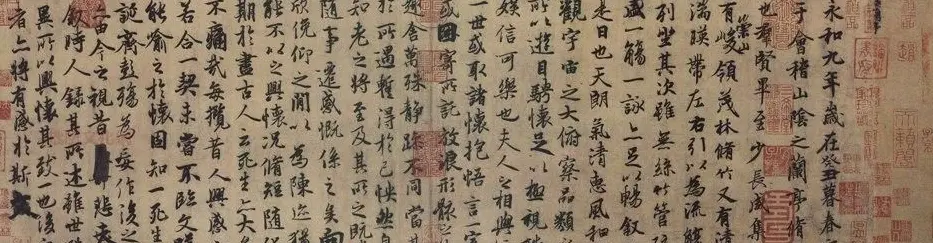 永和九年歲在癸丑暮春
于會稽山陰之蘭亭脩
也羣賢畢至少長咸集
有崇山峻領茂林脩竹又有清
湍暎帶左右引以為流
列坐其次雖無絲竹管
盛一觴一詠亦足以暢敘
是日也天朗氣清惠風和
觀宇宙之大俯察品類
所以遊目騁懷足以極視
娛信可樂也夫人之相與
一世或取諸懷抱悟言一
或因寄所託放浪形骸之
趣舍萬殊靜躁不同當其
於所遇蹔得於己怏然自
知老之將至及其所之
隨事遷感慨係之矣向
欣俛仰之閒以為陳迹猶
能不以之興懷況脩短隨化
期於盡古人云死生亦大矣
不痛哉每攬昔人興感
若合一契未嘗不臨文嗟
能喻之於懷固知一死生
誕齊彭殤為妄作後之
亦由今之視昔悲夫
敘時人錄其所述雖世
異所以興懷其致一也後
者亦將有感於斯文